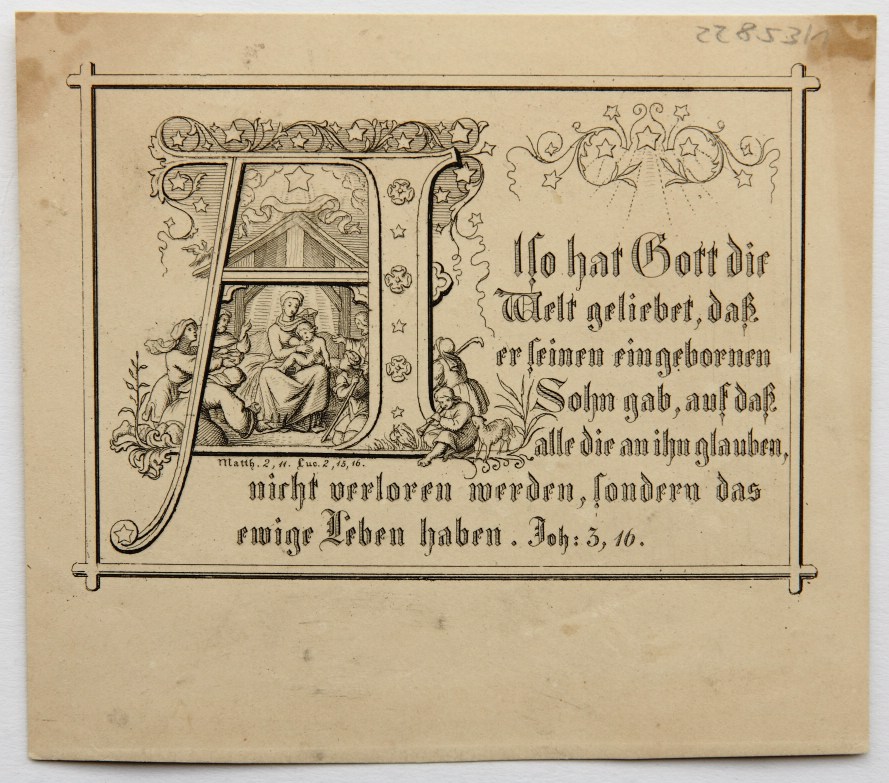 Alſo hat Gott die
Welt geliebet, daß
er ſeinen eingebornen
Sohn gab, auf daß
alle die an ihn glauben,
nicht verloren werden, ſondern das
ewige Leben haben. Joh: 3, 16.
Matth. 2, 11. Luc. 2, 15, 16.